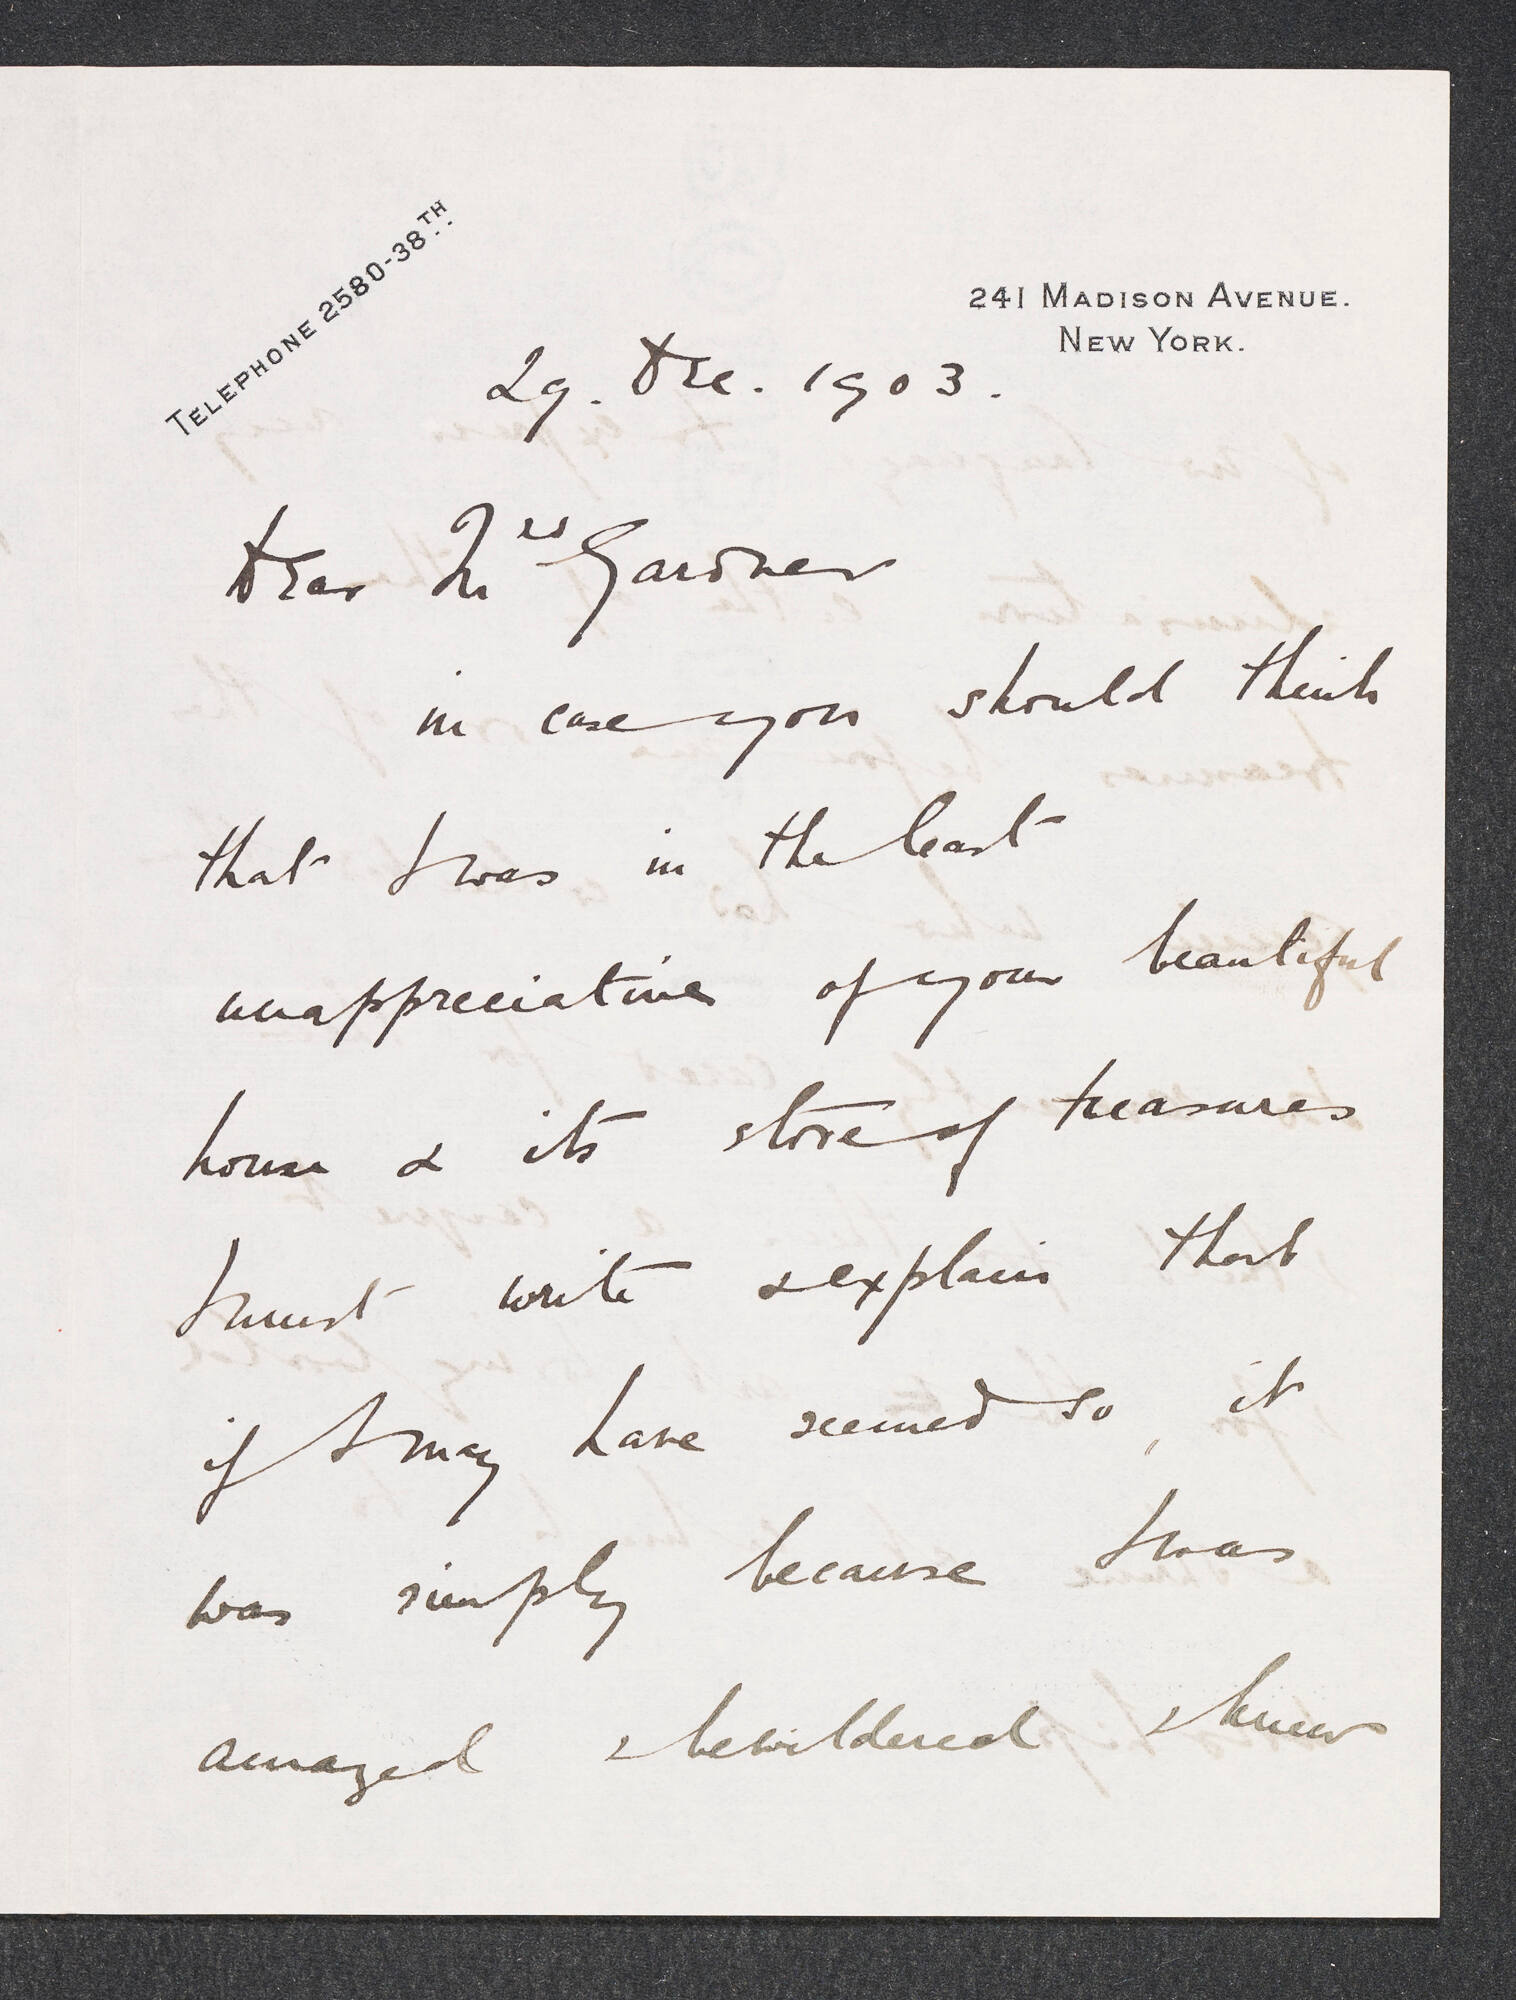 TELEPHONE 2580-38TH.
241 MADISON AVENUE.
NEW YORK.
29. Dec. 1903.
Dear Mrs Gardner
in case you should think
that I was in the least
unappreciative of your beautiful
house & its store of treasures
I must write & explain that
if I may have seemed so, it
was simply because I was
amazed & bewildered & knew